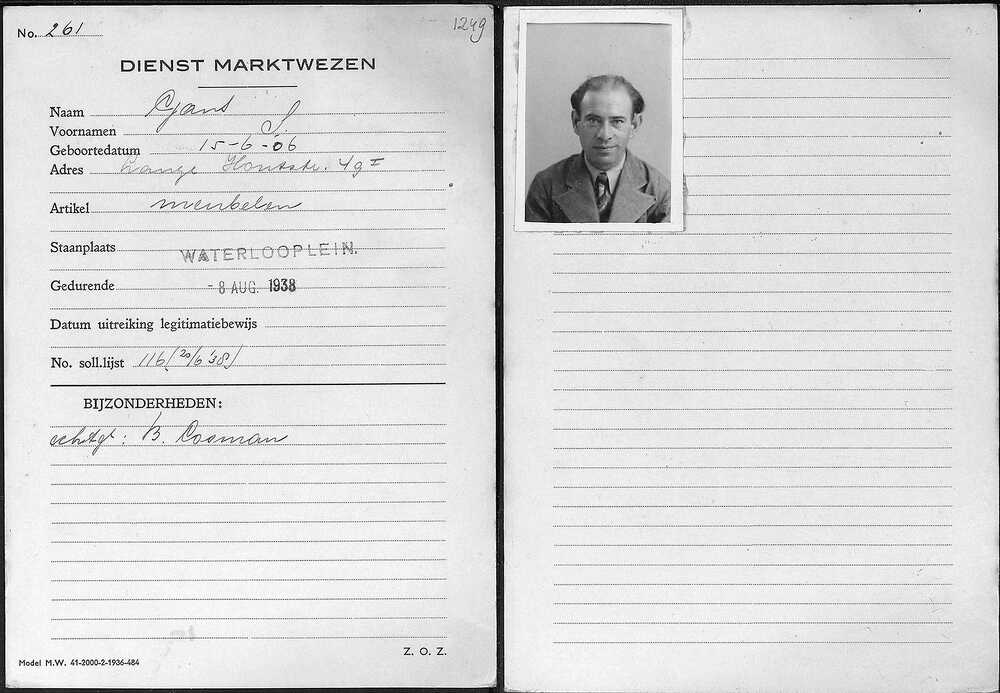 No. 261
1249
DIENST MARKTWEZEN
Naam Gans
Voornamen S.
Geboortedatum 15-6-06
Adres Lange Houtstr. 49 I
Artikel meubelen
Staanplaats WATERLOOPLEIN.
Gedurende - 8 AUG. 1938
Datum uitreiking legitimatiebewijs
No. soll.lijst 116 (20/6 '38)
BIJZONDERHEDEN:
echtgt: B. Cosman
Z. O. Z.
Model M.W. 41-2000-2-1936-484